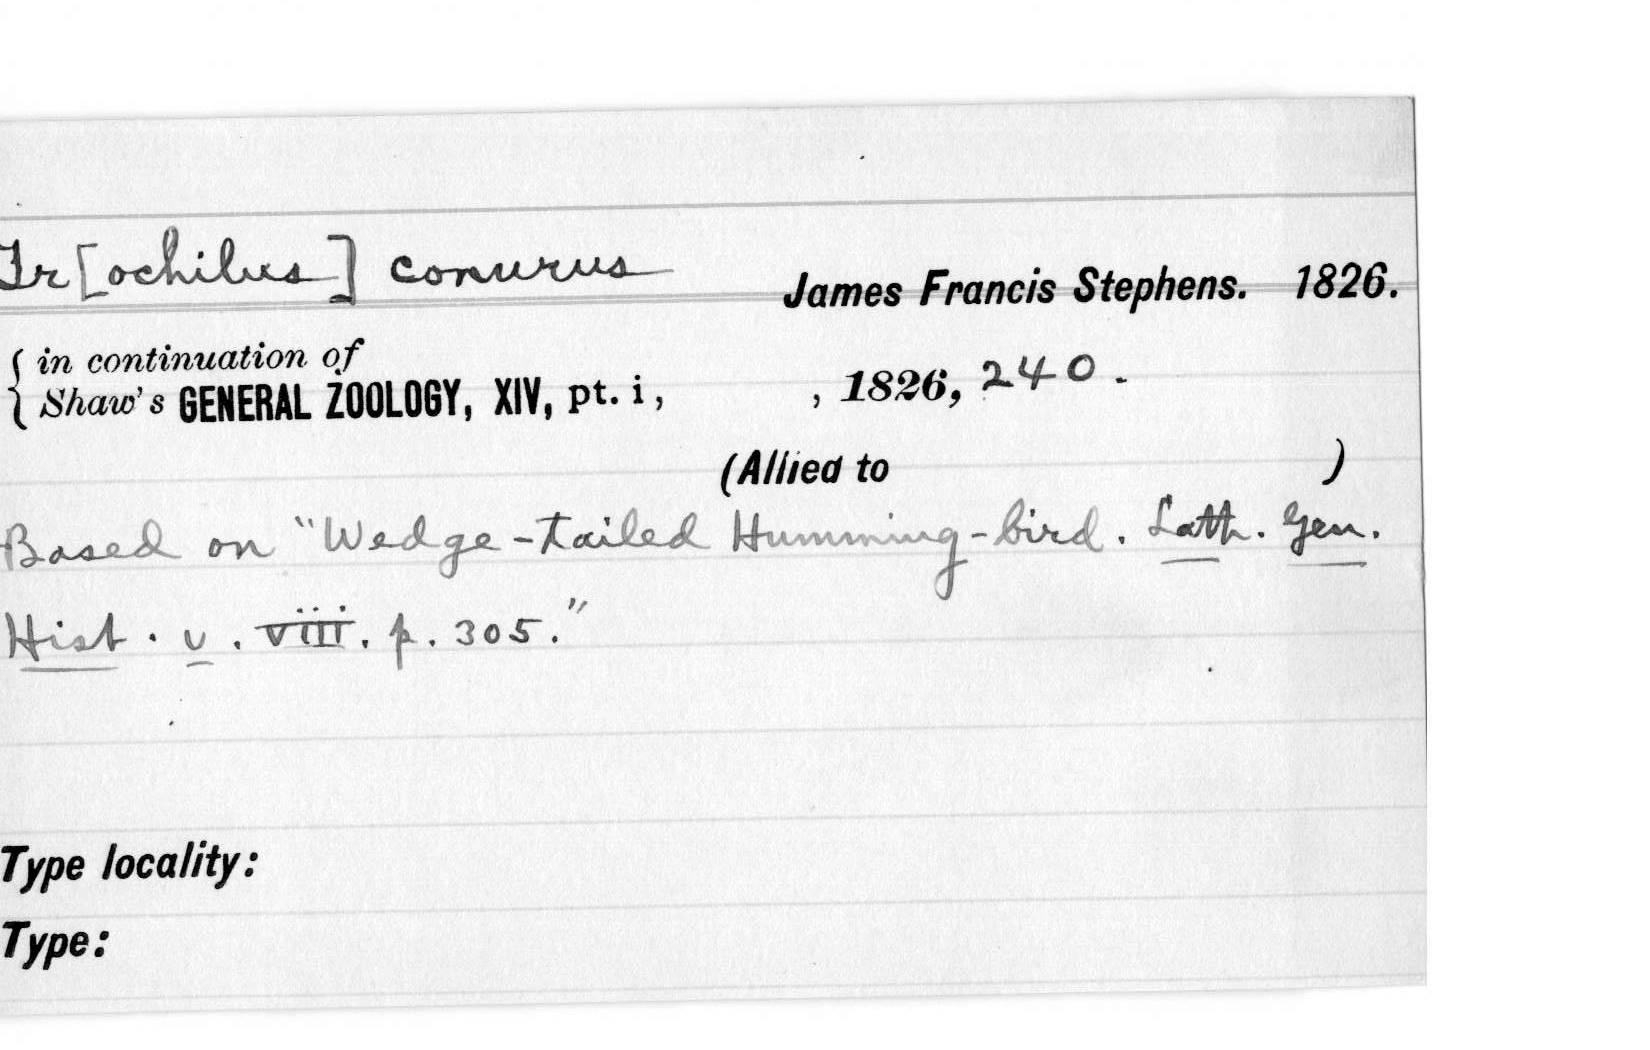 Tr[ochilus] conurus James Francis Stephens. 1826.
in continuation of
Shaw's GENERAL ZOOLOGY, XIV, pt. i, , 1826, 240.
(Allied to )
Based on "Wedge-tailed Humming-bird. Lath. Gen.
Hist. v. viii. p. 305."
Type locality:
Type: